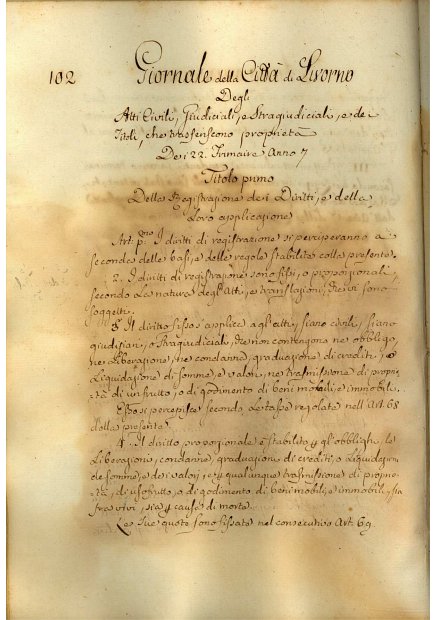 102 Giornale della Città di Livorno
Degli
Atti Civili, Giudiciali, e Stragiudiciali, e dei
Titoli, che trasferiscono proprietà
Dei 22. Frimaire Anno 7
Titolo primo
Della Registrazione dei Diritti, e della
loro applicazione
Art: p.mo I diritti di registrazione si percuperanno a
seconda delle basi, e delle regole stabilite colla presente.
2. I diritti di registrazione sono fissi, o proporzionali,
secondo la natura degl'Atti, e traslazioni, che vi sono
soggetti.
3. Il diritto fisso si applica agl'atti, siano civili, siano
giudiziari, o Stragiudiciali, che non contengono ne obbligo,
ne liberazione, ne condanne, graduazione di crediti, e
liquidazione di somme, e valori, ne trasmissione di propri-
età, di usufrutto, o di godimento di beni mobili, e immobili.
Esso si percepisce secondo le tasse regolate nell'Art. 68
della presente.
4. Il diritto proporzionale è stabilito gl'obblighi, le
liberazioni, condanne, graduazioni di crediti, o liquidazioni
de somme, e dei valori, e qualunque trasmissione di proprie-
età, di usofrutto, o di godimento di beni mobili, e immobili, sia
fra vivi, sia causa di morte.
Le sue quote sono fissate nel consecutivo Art. 69.